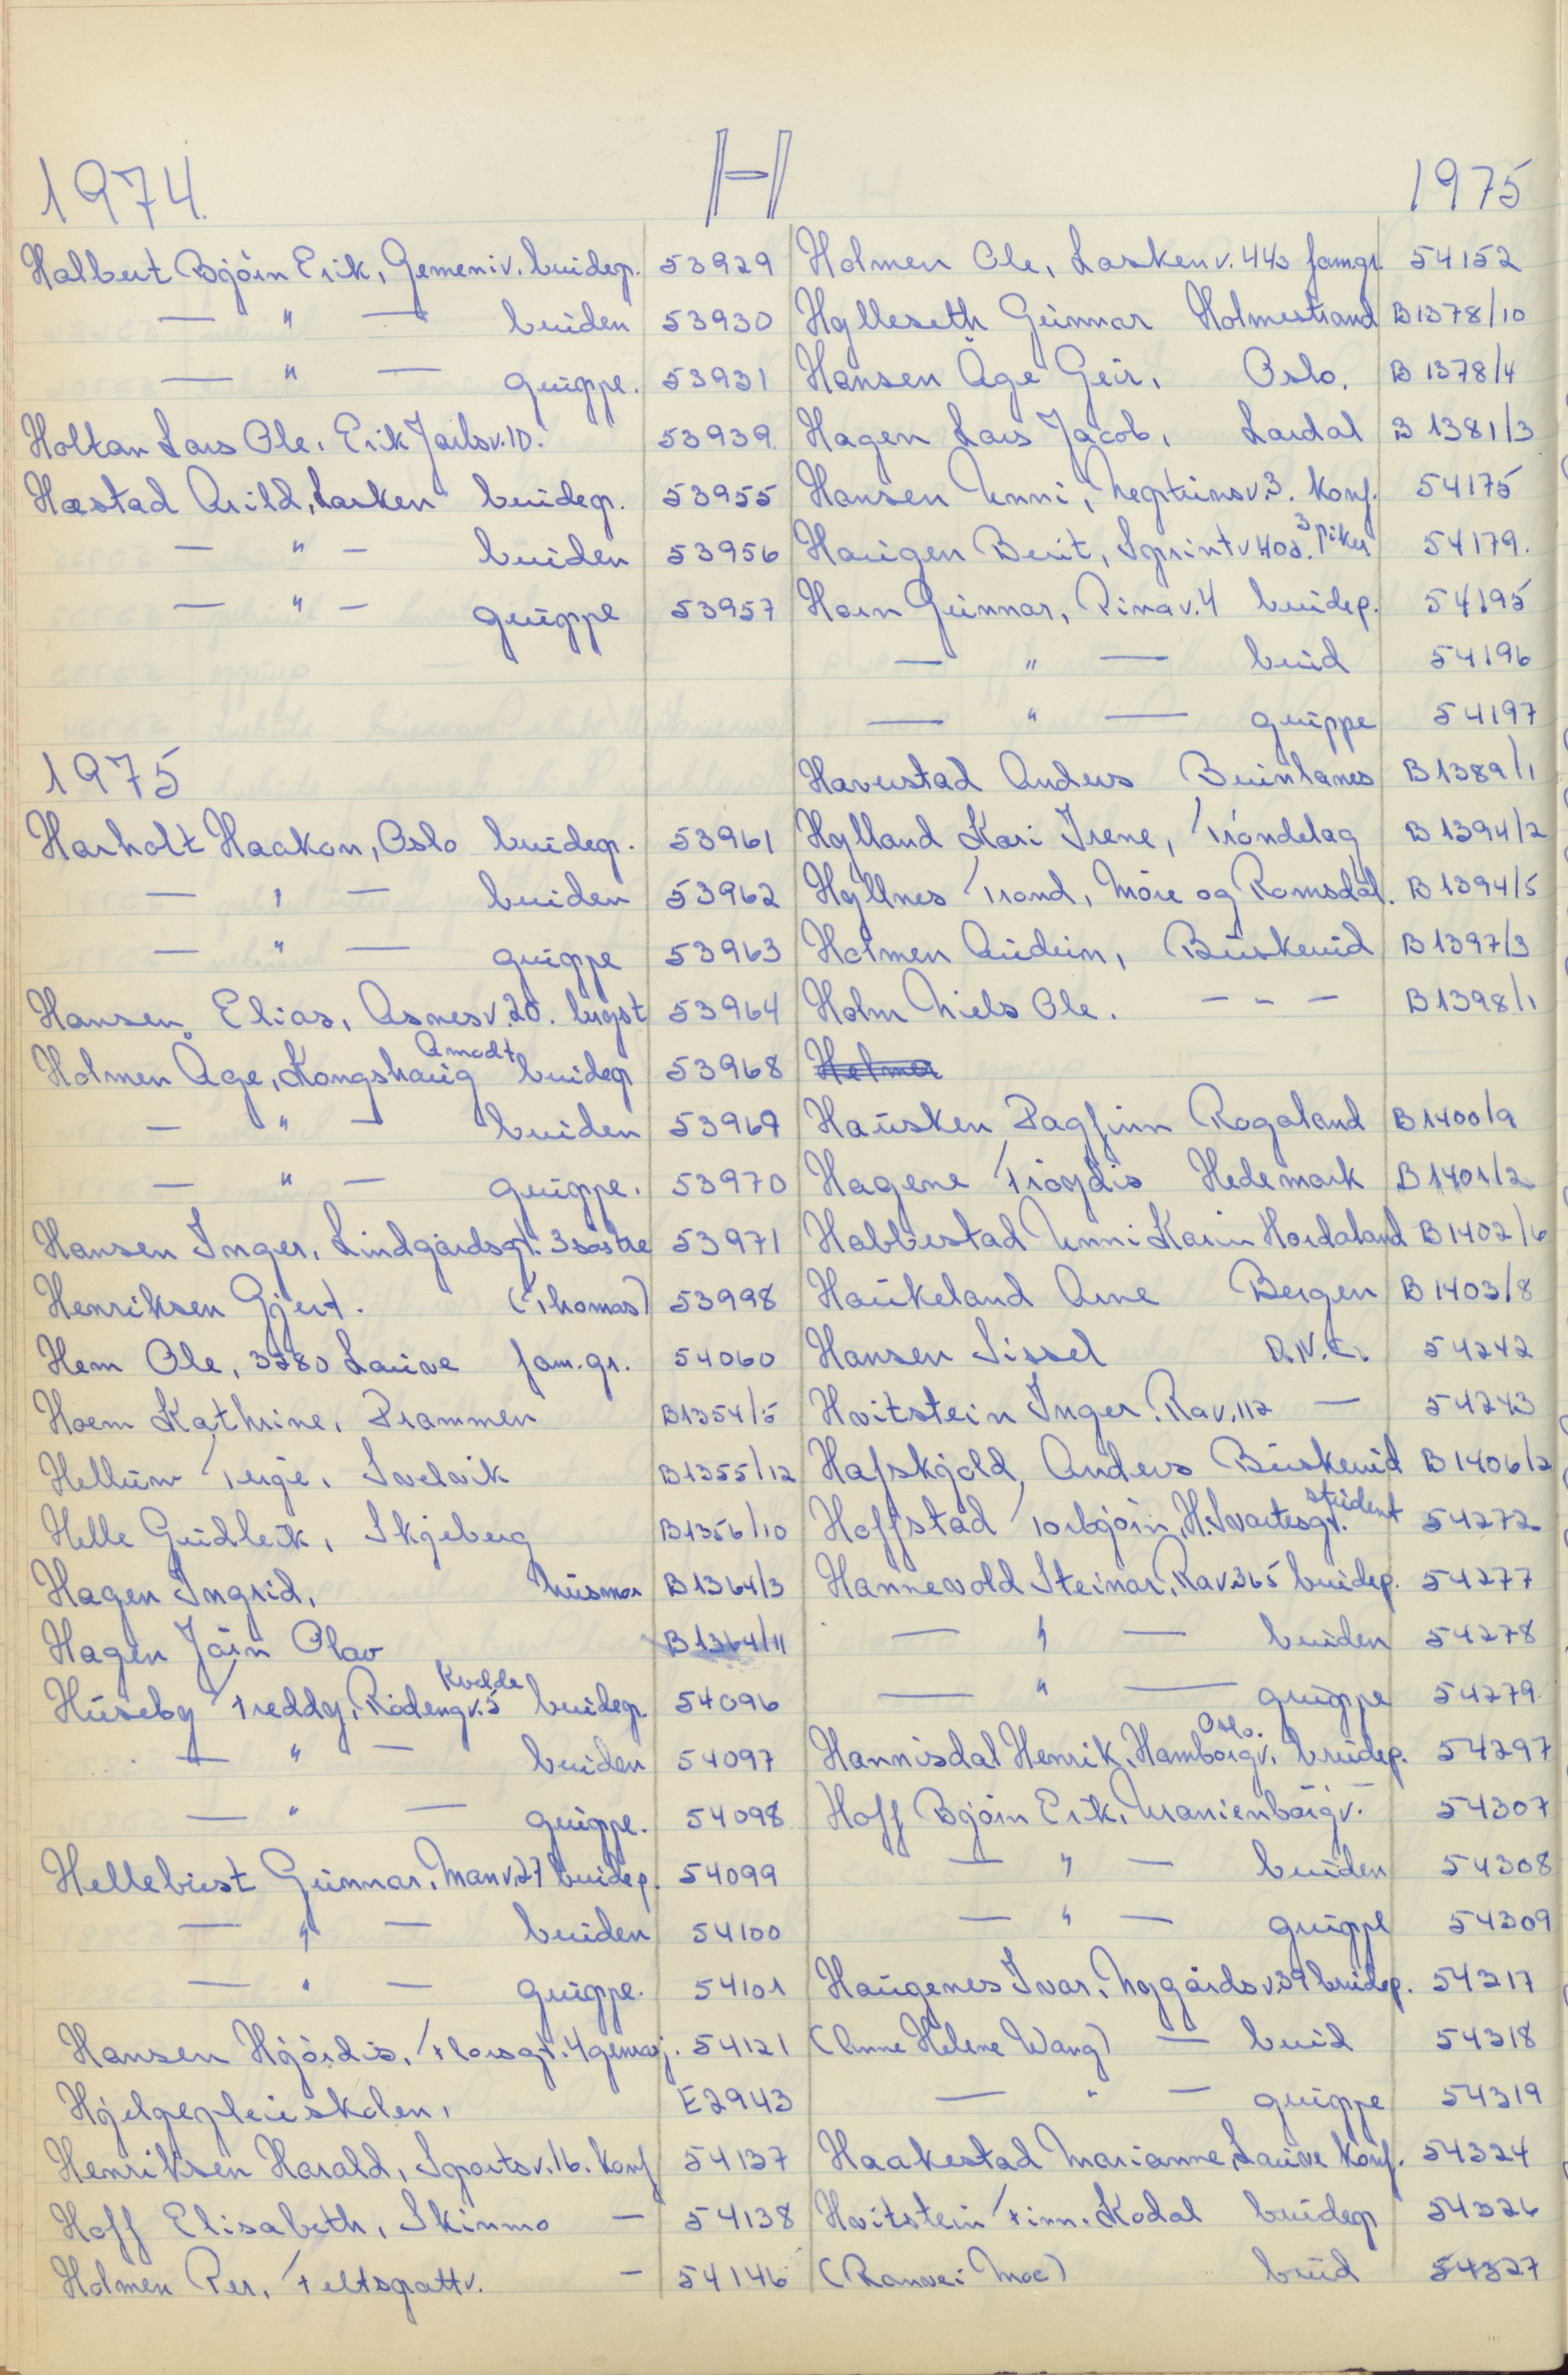 H
1974.
Halbert Bjørn Erik, Gemeniv. brudep. 53929
— " — bruden 53930
— " — gruppe. 53931
Holtan Lars Ole, Erik Jarlsv. 10. 53939
Hæstad Arild, Larken brudep. 53955
— " — bruden 53956
— " — gruppe 53957
1975
Harholt Haakon, Oslo brudep. 53961
— " — bruden 53962
— " — gruppe 53963
Hansen, Elias, Asnesv. 20. 53964
Holmen Åge, Kongshaug Amodt brudep 53968
— " — bruden 53969
— " — gruppe. 53970
Hansen Inger, Lindgårdsgt. 3 søstre 53971
Henriksen Gjert. (Thomas) 53998
Hem Ole, 3280 Lauve fam.gr. 54060
Hoem Kathrine, Drammen B1354/5
Hellum Terje, Svelvik B1355/12
Helle Gudleik, Skjeberg B1356/10
Hagen Ingrid, husmor B1364/3
Hagen Jørn Olav B1364/11
Huseby Freddy, Rødengv. 5 Kvelde brudep. 54096
— " — bruden 54097
— " — gruppe. 54098
Hellebust Gunnar, Manv. 27 brudep. 54099
— " — bruden 54100
— " — gruppe. 54101
Hansen Hjørdis, Florsgt. 4 generasj. 54121
Hjelpepleieskolen, E2943
Henriksen Harald, Sportsv. 16. Konf 54137
Hoff Elisabeth, Skinmo — 54138
Holmen Per, Feltspattv. — 54146
1975
Holmen Ole, Laskenv. 44b fam.gr. 54152
Hylleseth Gunnar Holmestrand B1378/10
Hansen Åge Geir, Oslo. B 1378/4
Hagen Lars Jacob, Lardal B 1381/3
Hansen Unni, Neptunsv. 3. Konf. 54175
Haugen Berit, Sprintv 40a. 3 piker 54179.
Horn Gunnar, Rinav. 4 brudep. 54195
— " — brud 54196
— " — gruppe 54197
Haverstad Anders Brunlanes B1389/1
Hylland Kari Irene, Trøndelag B1394/2
Hyllnes Trond, Møre og Romsdal. B1394/5
Holmen Audun, Buskerud B1397/3
Holm Niels Ole. — " — B1398/1
Holmen
Hausken Dagfinn Rogaland B1400/9
Hagene Frøydis Hedemark B1401/2
Habbestad Unni Karin Hordaland B1402/6
Haukeland Arne Bergen B1403/8
Hansen Sissel D.N.C. 54242
Hvitstein Inger. Rav. 112 — 54243
Hafskjold, Anders Buskerud B1406/2
Hoffstad Torbjørn, H. Svartesgt. student 54272
Hannevold Steinar, Rav. 365 brudep. 54277
— " — bruden 54278
— " — gruppe 54279
Hannisdal Henrik, Hamborgv. Oslo. brudep. 54297
Hoff Bjørn Erik, Uranienborgv. — 54307
— " — bruden 54308
— " — gruppe 54309
Haugenes Ivar, Nygårdsv. 39 brudep. 54317
(Anne Helene Wang) — brud 54318
— " — gruppe 54319
Haakestad Marianne, Lauve Konf. 54324
Hvitstein Finn. Kodal brudep 54326
(Ranvei Moe) brud 54327